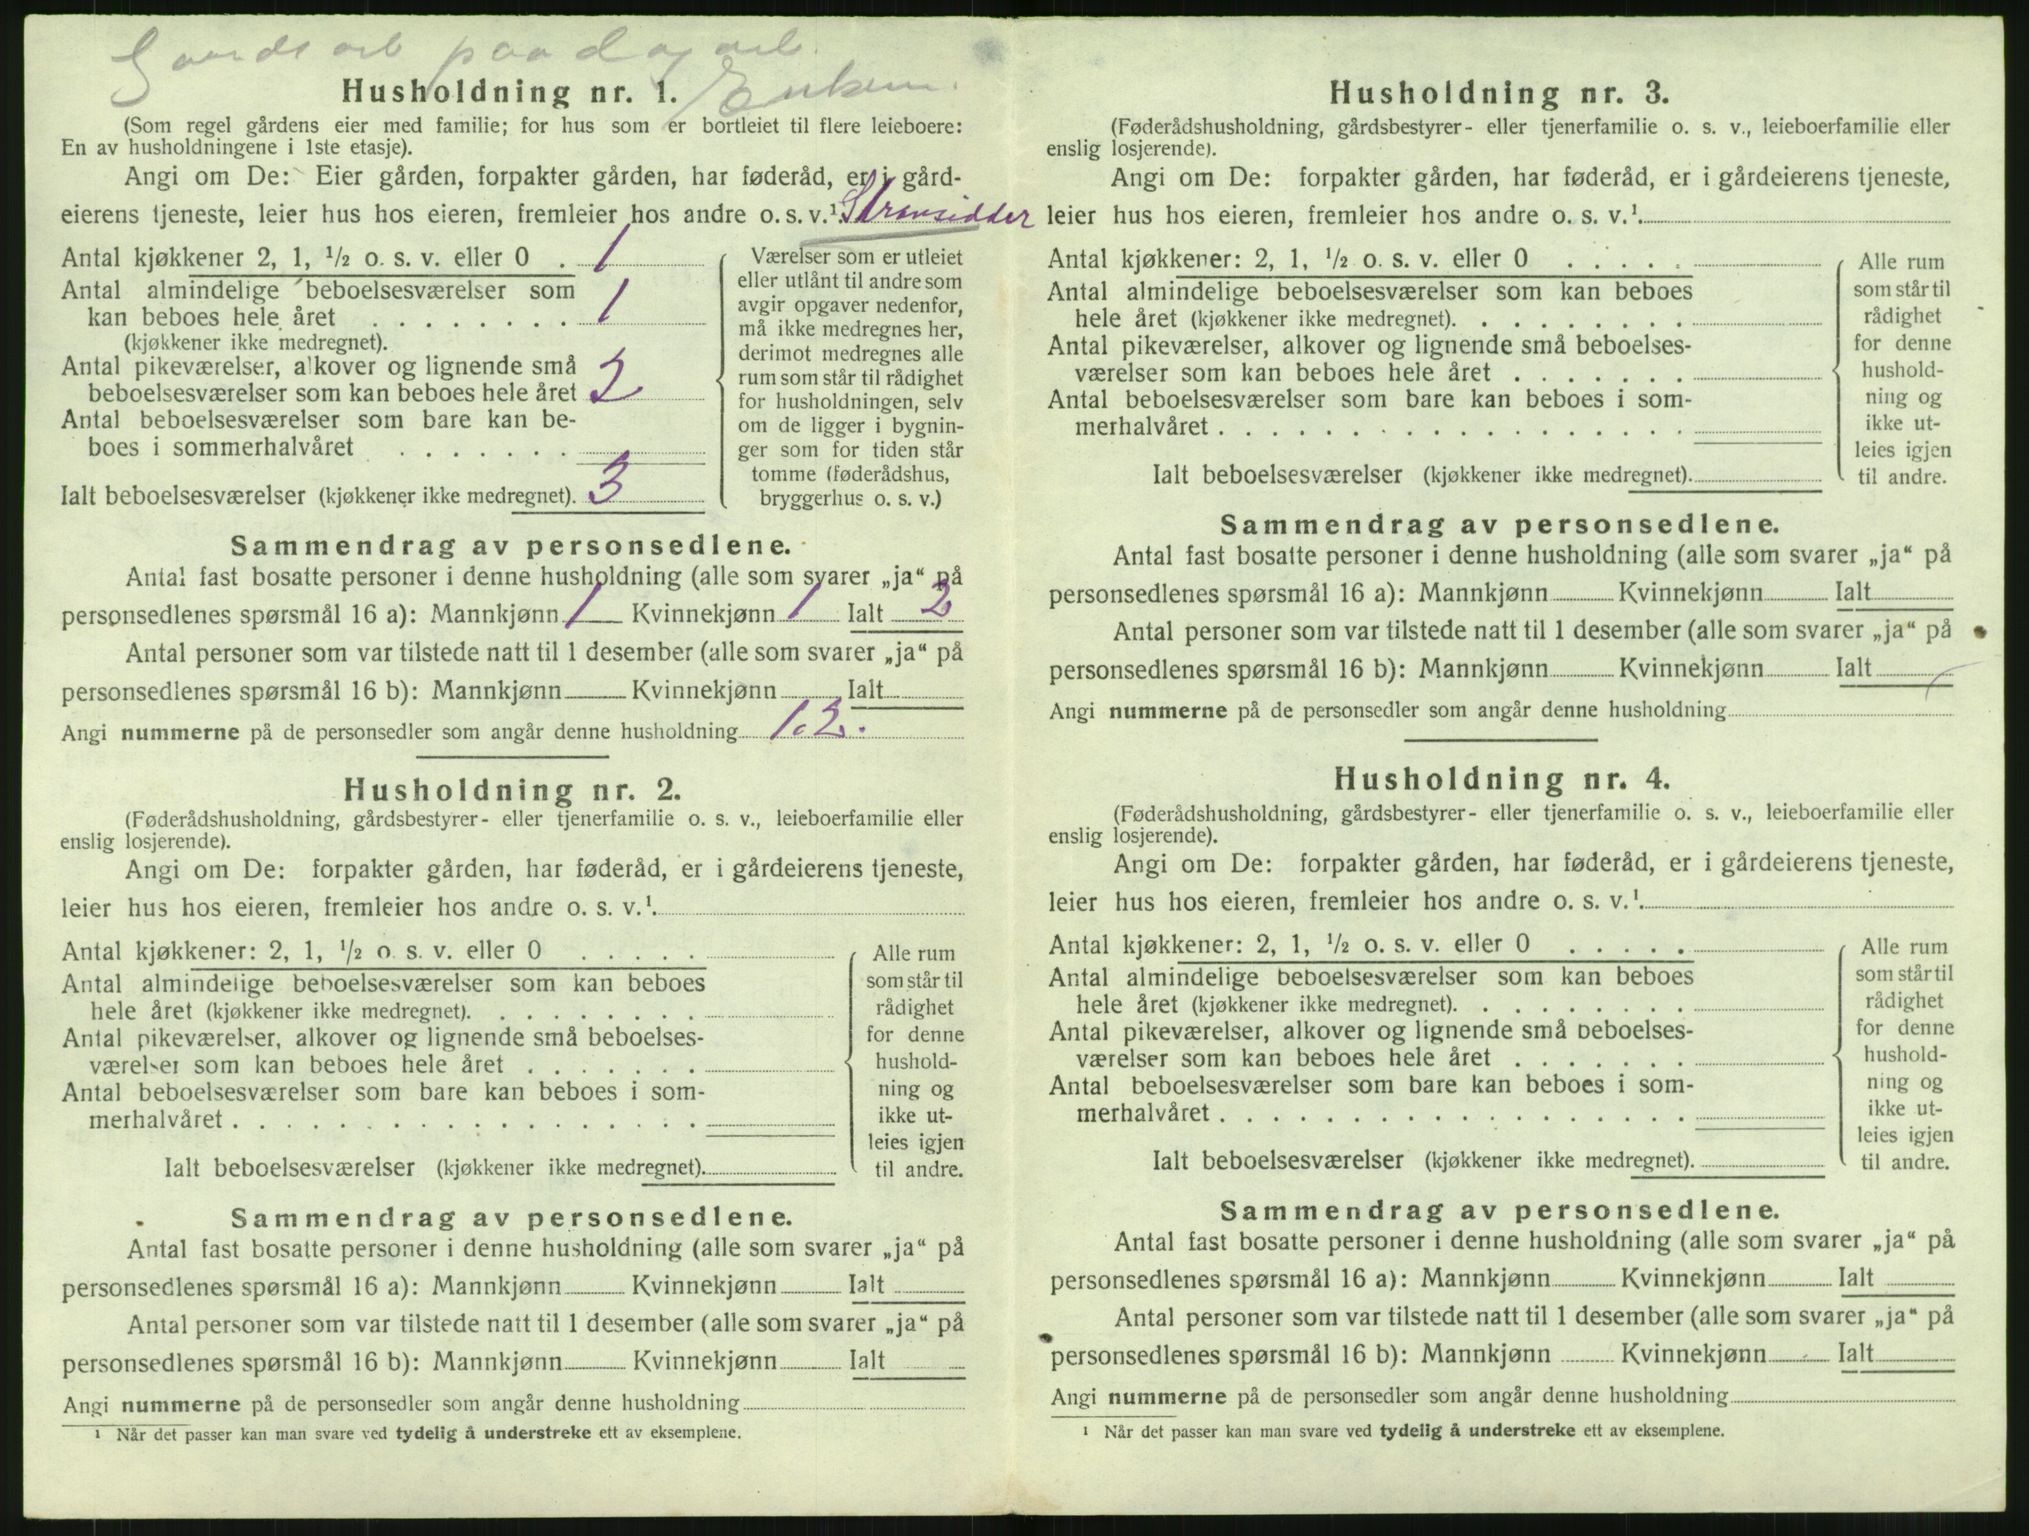 Gaardsarb paa dagarb.
Enkem.
Husholdning nr. 1.
(Som regel gårdens eier med familie; for hus som er bortleiet til flere leieboere:
En av husholdningene i 1ste etasje).
Angi om De: Eier gården, forpakter gården, har føderåd, er i gård-
eierens tjeneste, leier hus hos eieren, fremleier hos andre o. s. v.¹ Stransidder
Antal kjøkkener 2, 1, ½ o. s. v. eller 0 . 1
Antal almindelige beboelsesværelser som
kan beboes hele året . . . . . . . . 1
(kjøkkener ikke medregnet).
Antal pikeværelser, alkover og lignende små
beboelsesværelser som kan beboes hele året 2
Antal beboelsesværelser som bare kan be-
boes i sommerhalvåret . . . . . . .
Ialt beboelsesværelser (kjøkkener ikke medregnet). 3
Værelser som er utleiet
eller utlånt til andre som
avgir opgaver nedenfor,
må ikke medregnes her,
derimot medregnes alle
rum som står til rådighet
for husholdningen, selv
om de ligger i bygnin-
ger som for tiden står
tomme (føderådshus,
bryggerhus o. s. v.)
Sammendrag av personsedlene.
Antal fast bosatte personer i denne husholdning (alle som svarer „ja“ på
personsedlenes spørsmål 16 a): Mannkjønn 1 Kvinnekjønn 1 Ialt 2
Antal personer som var tilstede natt til 1 desember (alle som svarer „ja“ på
personsedlenes spørsmål 16 b): Mannkjønn Kvinnekjønn Ialt
Angi nummerne på de personsedler som angår denne husholdning 1.2.
Husholdning nr. 2.
(Føderådshusholdning, gårdsbestyrer- eller tjenerfamilie o. s. v., leieboerfamilie eller
enslig losjerende).
Angi om De: forpakter gården, har føderåd, er i gårdeierens tjeneste,
leier hus hos eieren, fremleier hos andre o. s. v.¹.
Antal kjøkkener: 2, 1, ½ o. s. v. eller 0 . . . . .
Antal almindelige beboelsesværelser som kan beboes
hele året (kjøkkener ikke medregnet). . . . . . . . .
Antal pikeværelser, alkover og lignende små beboelses-
værelser som kan beboes hele året . . . . . . .
Antal beboelsesværelser som bare kan beboes i som-
merhalvåret . . . . . . . . . . . . . . . . . .
Ialt beboelsesværelser (kjøkkener ikke medregnet).
Alle rum
som står til
rådighet
for denne
hushold-
ning og
ikke ut-
leies igjen
til andre.
Sammendrag av personsedlene.
Antal fast bosatte personer i denne husholdning (alle som svarer „ja“ på
personsedlenes spørsmål 16 a): Mannkjønn Kvinnekjønn Ialt
Antal personer som var tilstede natt til 1 desember (alle som svarer „ja“ på
personsedlenes spørsmål 16 b): Mannkjønn Kvinnekjønn Ialt
Angi nummerne på de personsedler som angår denne husholdning
¹ Når det passer kan man svare ved tydelig å understreke ett av eksemplene.
Husholdning nr. 3.
(Føderådshusholdning, gårdsbestyrer- eller tjenerfamilie o. s. v., leieboerfamilie eller
enslig losjerende).
Angi om De: forpakter gården, har føderåd, er i gårdeierens tjeneste,
leier hus hos eieren, fremleier hos andre o. s. v.¹.
Antal kjøkkener: 2, 1, ½ o. s. v. eller 0 . . . . .
Antal almindelige beboelsesværelser som kan beboes
hele året (kjøkkener ikke medregnet). . . . . . . . .
Antal pikeværelser, alkover og lignende små beboelses-
værelser som kan beboes hele året . . . . . . .
Antal beboelsesværelser som bare kan beboes i som-
merhalvåret . . . . . . . . . . . . . . . . . .
Ialt beboelsesværelser (kjøkkener ikke medregnet).
Alle rum
som står til
rådighet
for denne
hushold-
ning og
ikke ut-
leies igjen
til andre.
Sammendrag av personsedlene.
Antal fast bosatte personer i denne husholdning (alle som svarer „ja“ på
personsedlenes spørsmål 16 a): Mannkjønn Kvinnekjønn Ialt
Antal personer som var tilstede natt til 1 desember (alle som svarer „ja“ på
personsedlenes spørsmål 16 b): Mannkjønn Kvinnekjønn Ialt
Angi nummerne på de personsedler som angår denne husholdning
Husholdning nr. 4.
(Føderådshusholdning, gårdsbestyrer- eller tjenerfamilie o. s. v., leieboerfamilie eller
enslig losjerende).
Angi om De: forpakter gården, har føderåd, er i gårdeierens tjeneste,
leier hus hos eieren, fremleier hos andre o. s. v.¹.
Antal kjøkkener: 2, 1, ½ o. s. v. eller 0 . . . . .
Antal almindelige beboelsesværelser som kan beboes
hele året (kjøkkener ikke medregnet). . . . . . . . .
Antal pikeværelser, alkover og lignende små beboelses-
værelser som kan beboes hele året . . . . . . .
Antal beboelsesværelser som bare kan beboes i som-
merhalvåret . . . . . . . . . . . . . . . . . .
Ialt beboelsesværelser (kjøkkener ikke medregnet).
Alle rum
som står til
rådighet
for denne
hushold-
ning og
ikke ut-
leies igjen
til andre.
Sammendrag av personsedlene.
Antal fast bosatte personer i denne husholdning (alle som svarer „ja“ på
personsedlenes spørsmål 16 a): Mannkjønn Kvinnekjønn Ialt
Antal personer som var tilstede natt til 1 desember (alle som svarer „ja“ på
personsedlenes spørsmål 16 b): Mannkjønn Kvinnekjønn Ialt
Angi nummerne på de personsedler som angår denne husholdning
¹ Når det passer kan man svare ved tydelig å understreke ett av eksemplene.